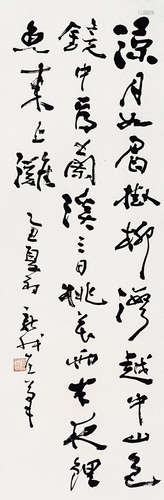 涼月如眉掛柳灣越中山色
鏡中看蘭溪三日桃花雨半夜鯉
魚來上灘
乙丑夏初新我左筆